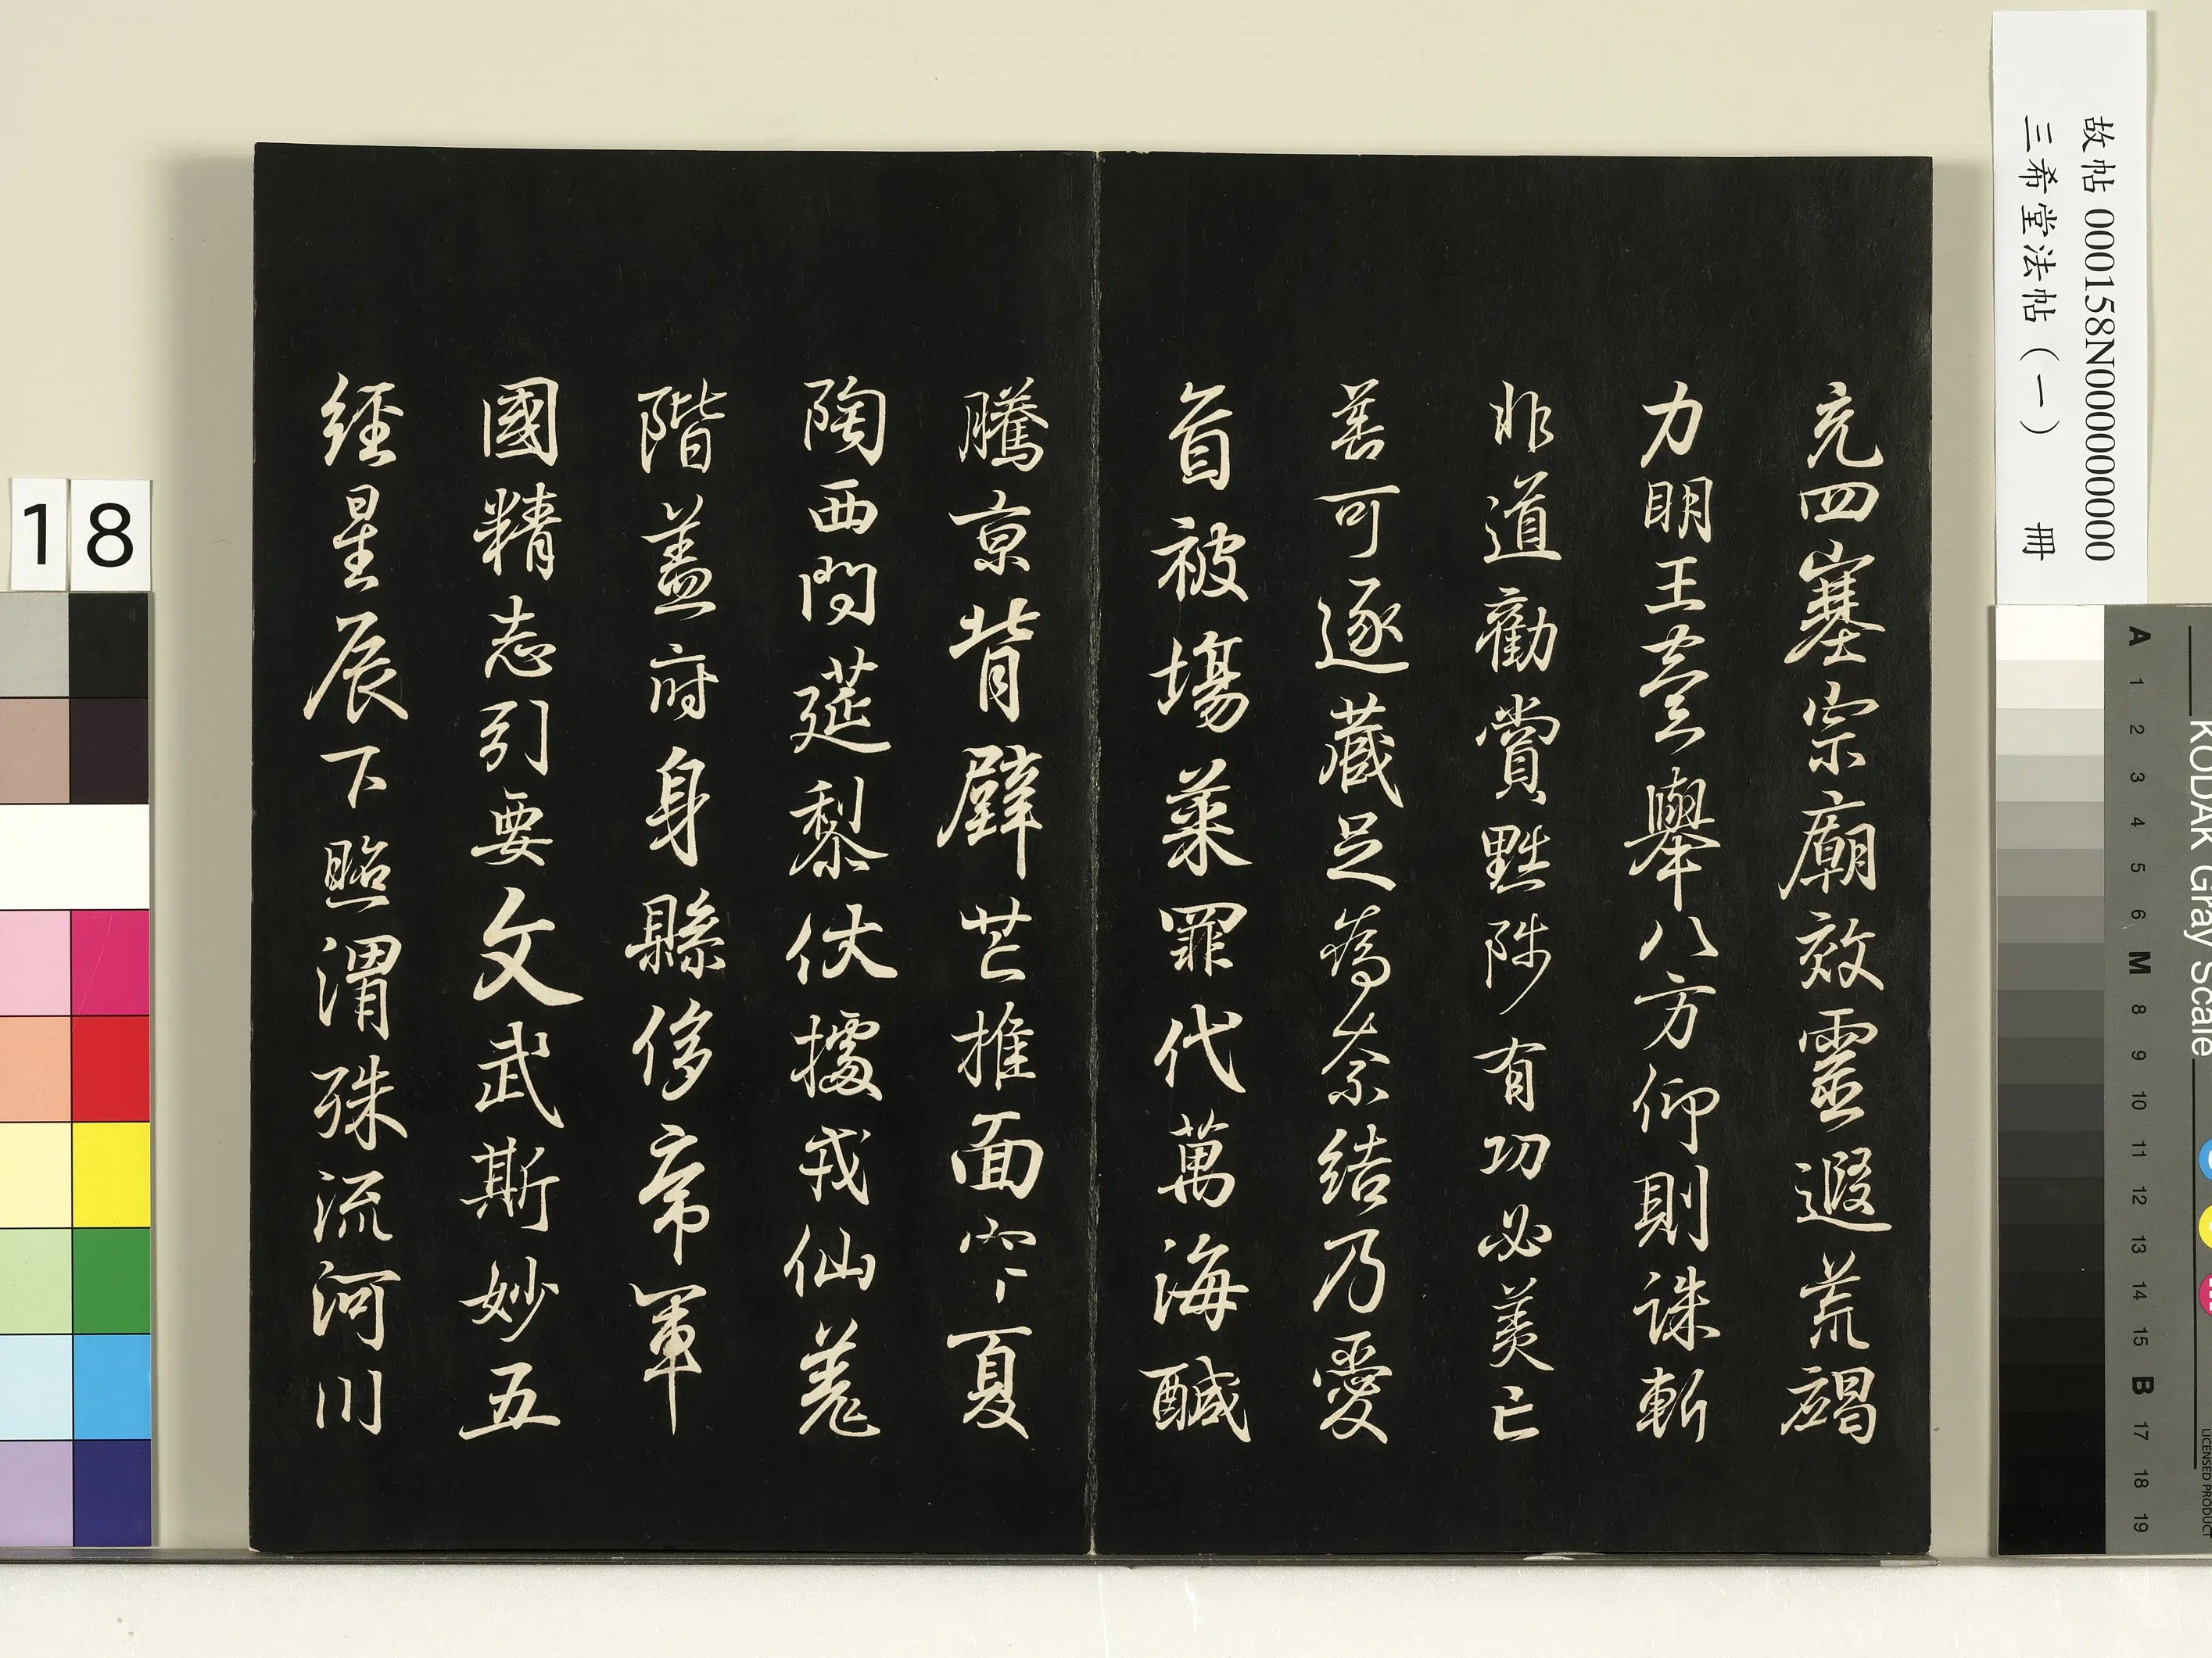 故帖 000158N000000000
三希堂法帖（一） 冊
充四塞宗廟效靈遐荒竭
力明王舉八方仰則誅斬
非道勸賞黜陟有功必美亡
善可逐藏足為奈結乃愛
首被場菜罪代萬海醎
騰京背辟芒推面空夏
陶西問莚黎伏據戎仙羌
階蓋府身縣侈帝軍
國精志引要文武斯妙五
經星辰下照渭殊流河川
18
KODAK Gray Scale
A 1 2 3 4 5 6 M 8 9 10 11 12 13 14 15 B 17 18 19
LICENSED PRODUCT